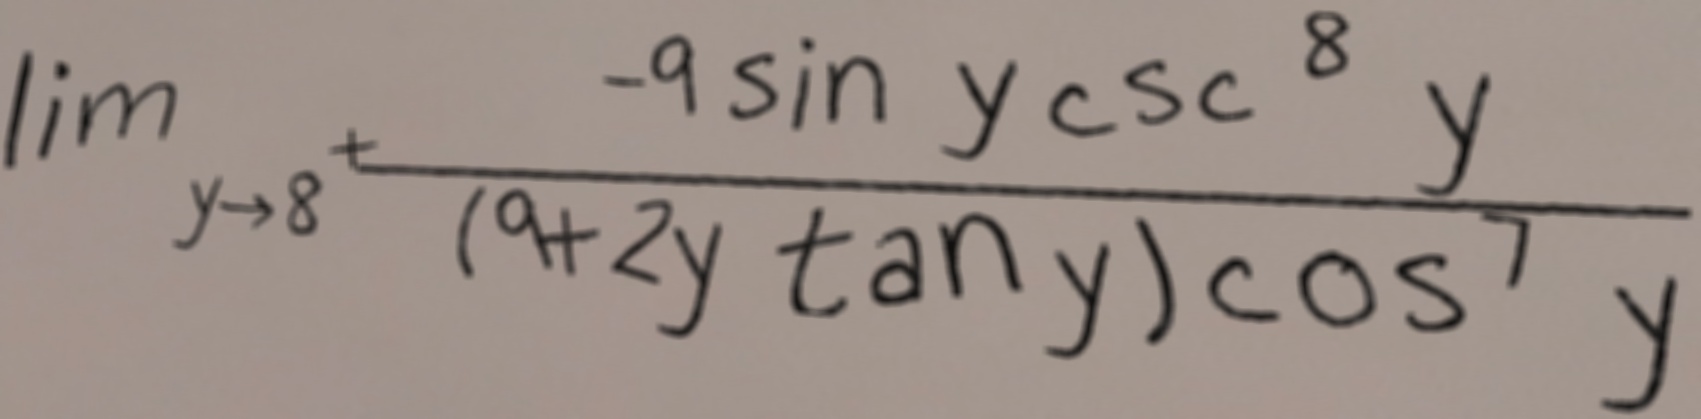 \lim_{y \to 8^+} \frac{-9 \sin y \csc^8 y}{(9+2y \tan y) \cos^7 y}